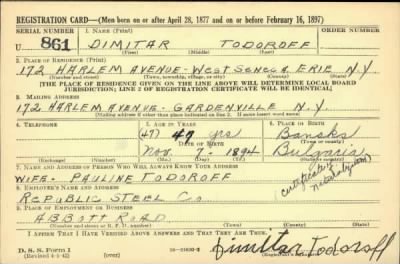 REGISTRATION CARD—(Men born on or after April 28, 1877 and on or before February 16, 1897)
SERIAL NUMBER
1. NAME (Print)
ORDER NUMBER
U 861
DIMITAR TODOROFF
(First) (Middle) (Last)
2. PLACE OF RESIDENCE (Print)
172 HARLEM AVENUE - West Seneca, ERIE N.Y.
(Number and street) (Town, township, village, or city) (County) (State)
[THE PLACE OF RESIDENCE GIVEN ON THE LINE ABOVE WILL DETERMINE LOCAL BOARD
JURISDICTION; LINE 2 OF REGISTRATION CERTIFICATE WILL BE IDENTICAL]
3. MAILING ADDRESS
172 HARLEM AVENUE - GARDENVILLE N.Y.
[Mailing address if other than place indicated on line 2. If same insert word same]
4. TELEPHONE
5. AGE IN YEARS
6. PLACE OF BIRTH
(47) 49 yrs
Bansko
DATE OF BIRTH
(Town or county)
Nov 7 - 1894
Bulgaria
(Exchange) (Number)
(Mo.) (Day) (Yr.)
(State or country)
7. NAME AND ADDRESS OF PERSON WHO WILL ALWAYS KNOW YOUR ADDRESS
certificate
naturalization)
WIFE - PAULINE TODOROFF
8. EMPLOYER'S NAME AND ADDRESS
REPUBLIC STEEL Co
9. PLACE OF EMPLOYMENT OR BUSINESS
ABBOTT ROAD
(Number and street or R. F. D. number) (Town) (County) (State)
I AFFIRM THAT I HAVE VERIFIED ABOVE ANSWERS AND THAT THEY ARE TRUE.
D. S. S. Form 1
(Revised 4-1-42) (over)
Dimitar Todoroff